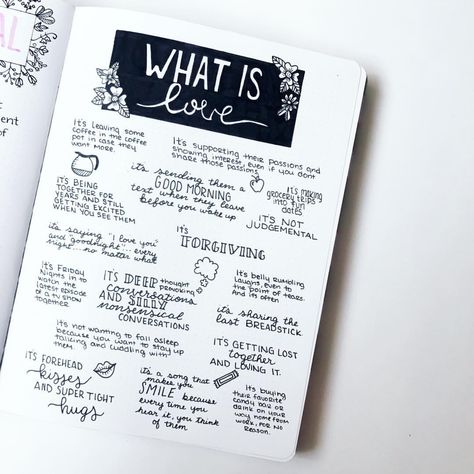 AL
of
WHAT IS
love
It's leaving some
coffee in the coffee
pot in case they
want more.
It's supporting their passions and
showing interest, even if you dont
share those passions
it's sending them a
GOOD MORNING
text when they leave
before you wake up
It's making
grocery trips
into fun
dates
IT'S BEING
TOGETHER FOR
YEARS AND STILL
GETTING EXCITED
WHEN YOU SEE THEM
IT'S NOT
JUDGEMENTAL
it's saying "I love you"
and "goodnight" every
night... no matter what
IT'S
FORGIVING
IT'S Friday
Nights in to
watch the
latest episode
of a tv show
together
IT'S DEEP thought
provoking
conversations
AND SILLY
nonsensical
CONVERSATIONS
It's belly rumbling
laughs, even to
the point of tears.
And its often
it's sharing the
last BREADSTICK.
It's not wanting to fall asleep
because you want to stay up
talking and cuddling with
IT'S GETTING LOST
together
AND LOVING IT.
IT'S FOREHEAD
kisses
AND SUPER TIGHT
hugs
it's a song that
makes you
SMILE because
every time you
hear it, you think
of them
It's buying
their favorite
candy bar or
drink on your
way home from
work, FOR NO
REASON.